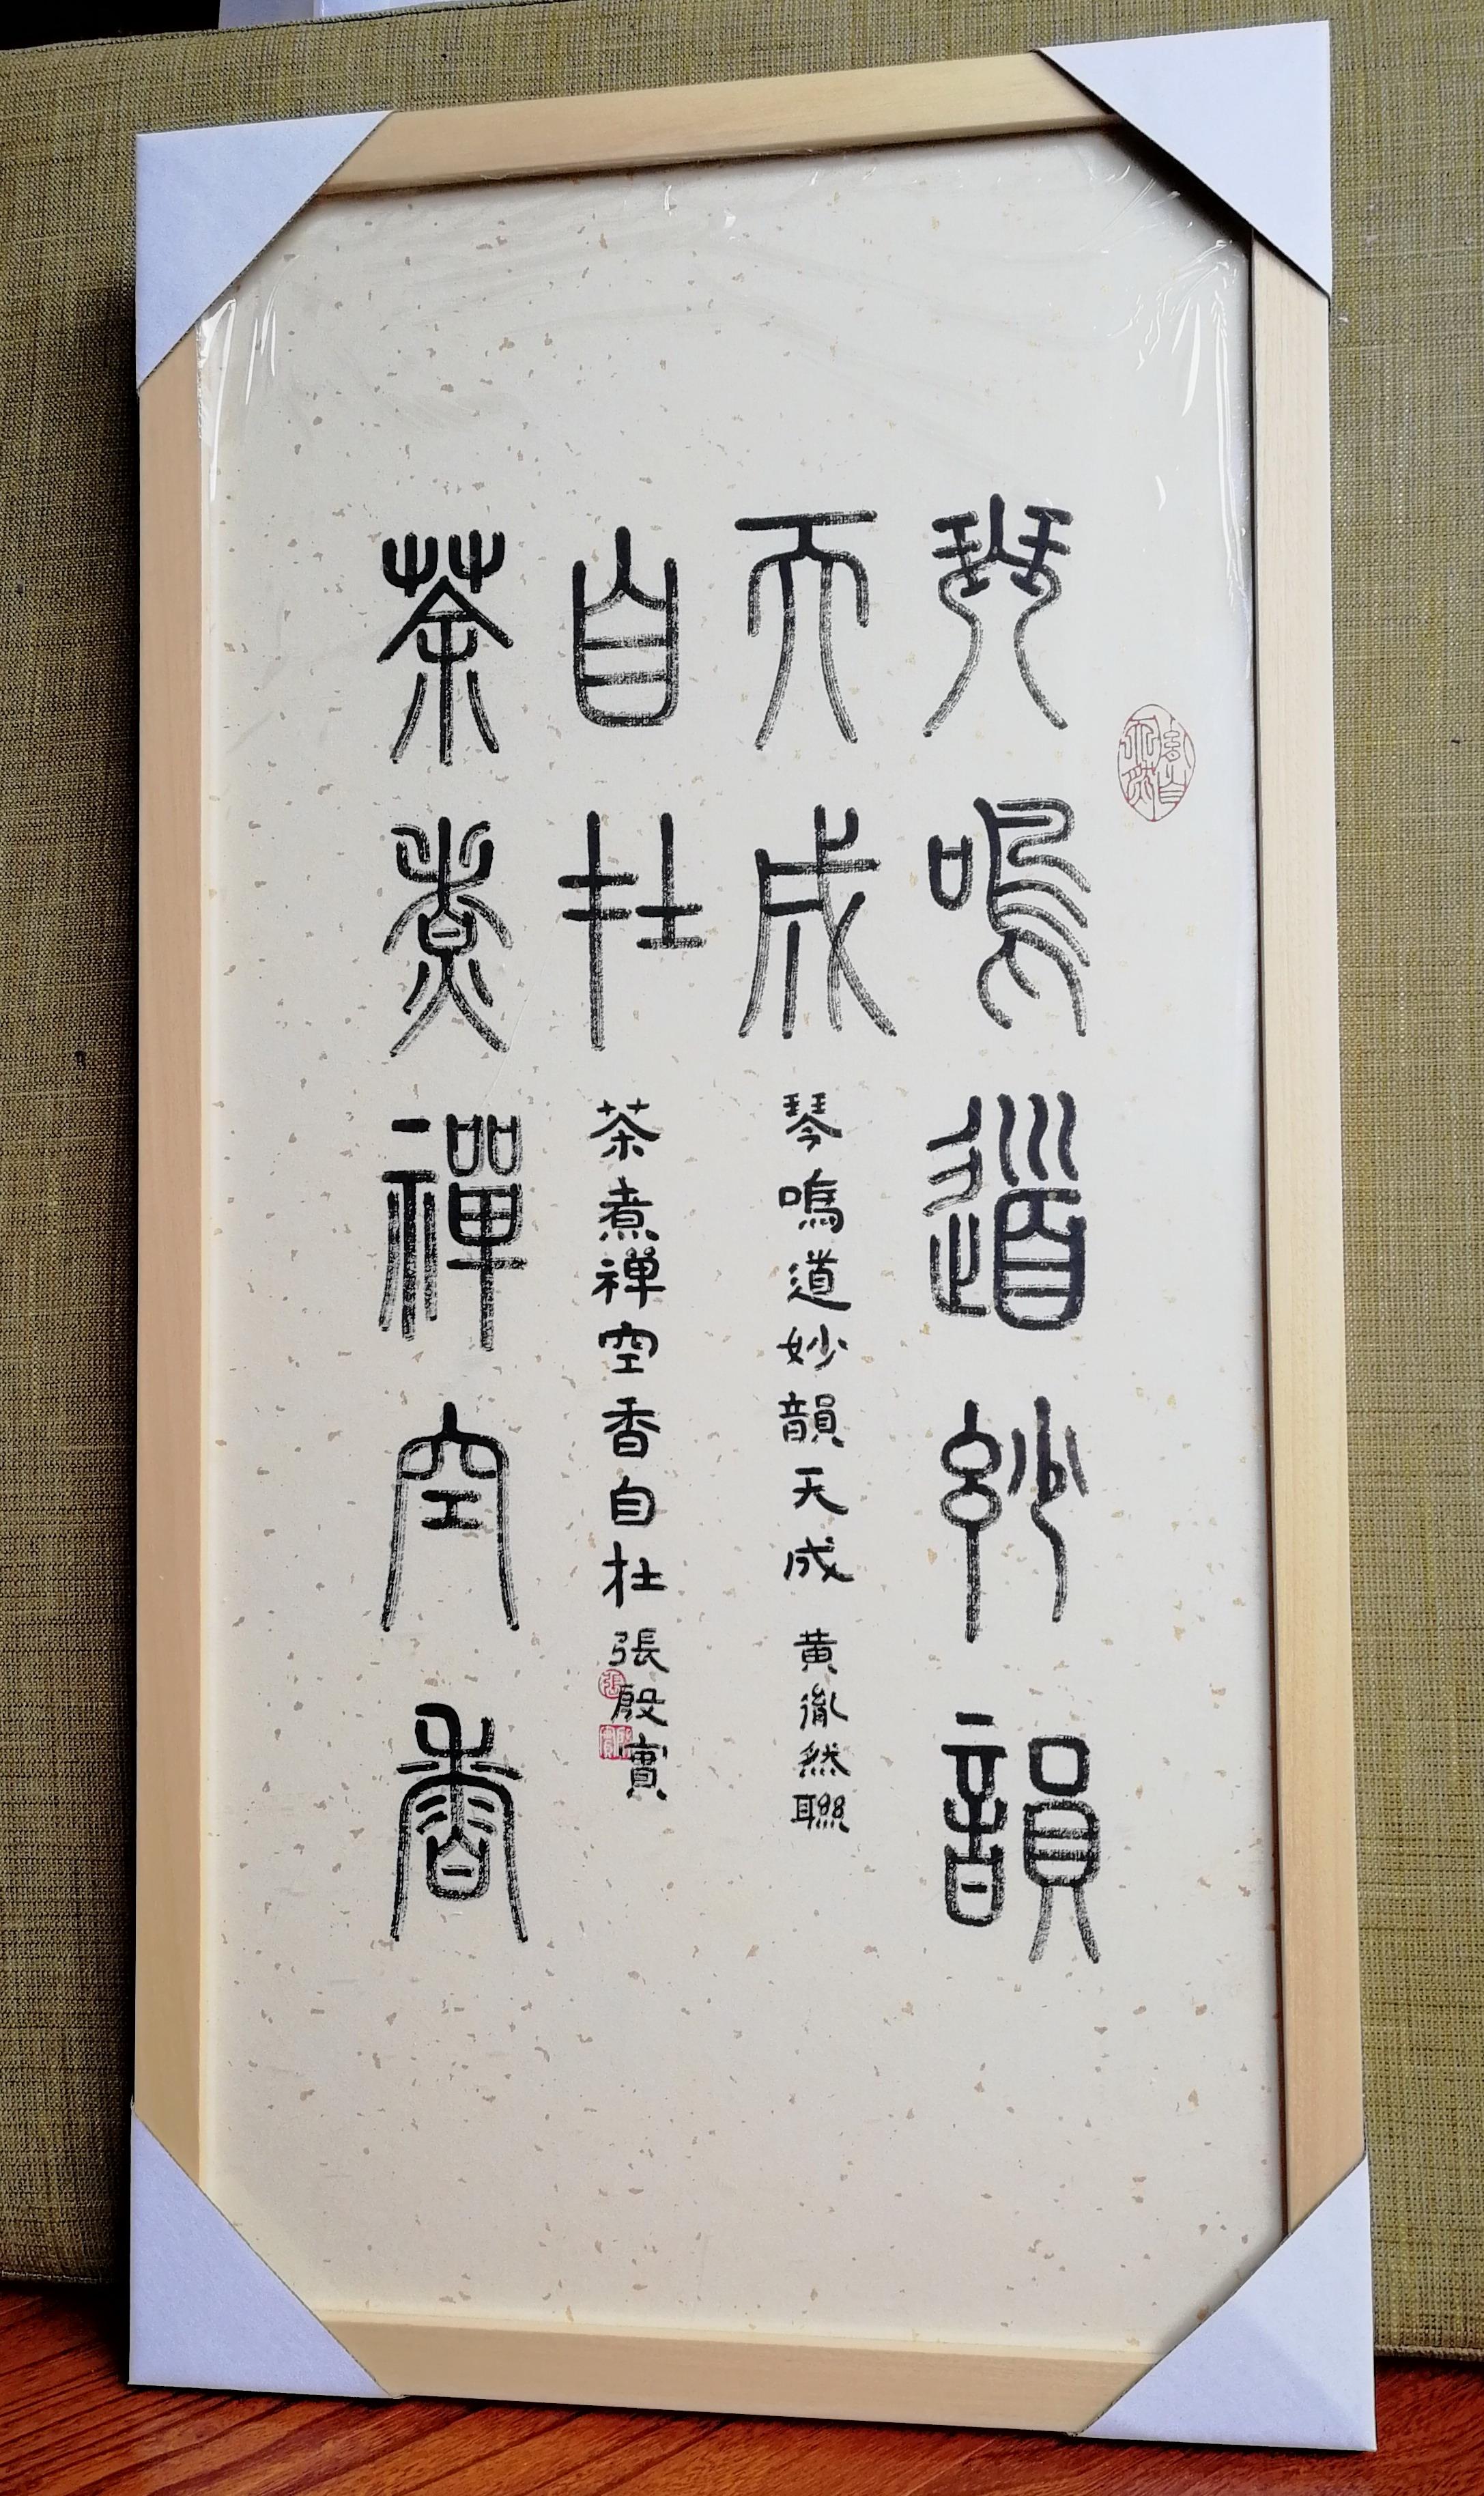 琴鳴道妙韻
天成
琴鳴道妙韻天成 黄胤然聯
茶煮禪空香
自杜
茶煮禪空香自杜 張殷實